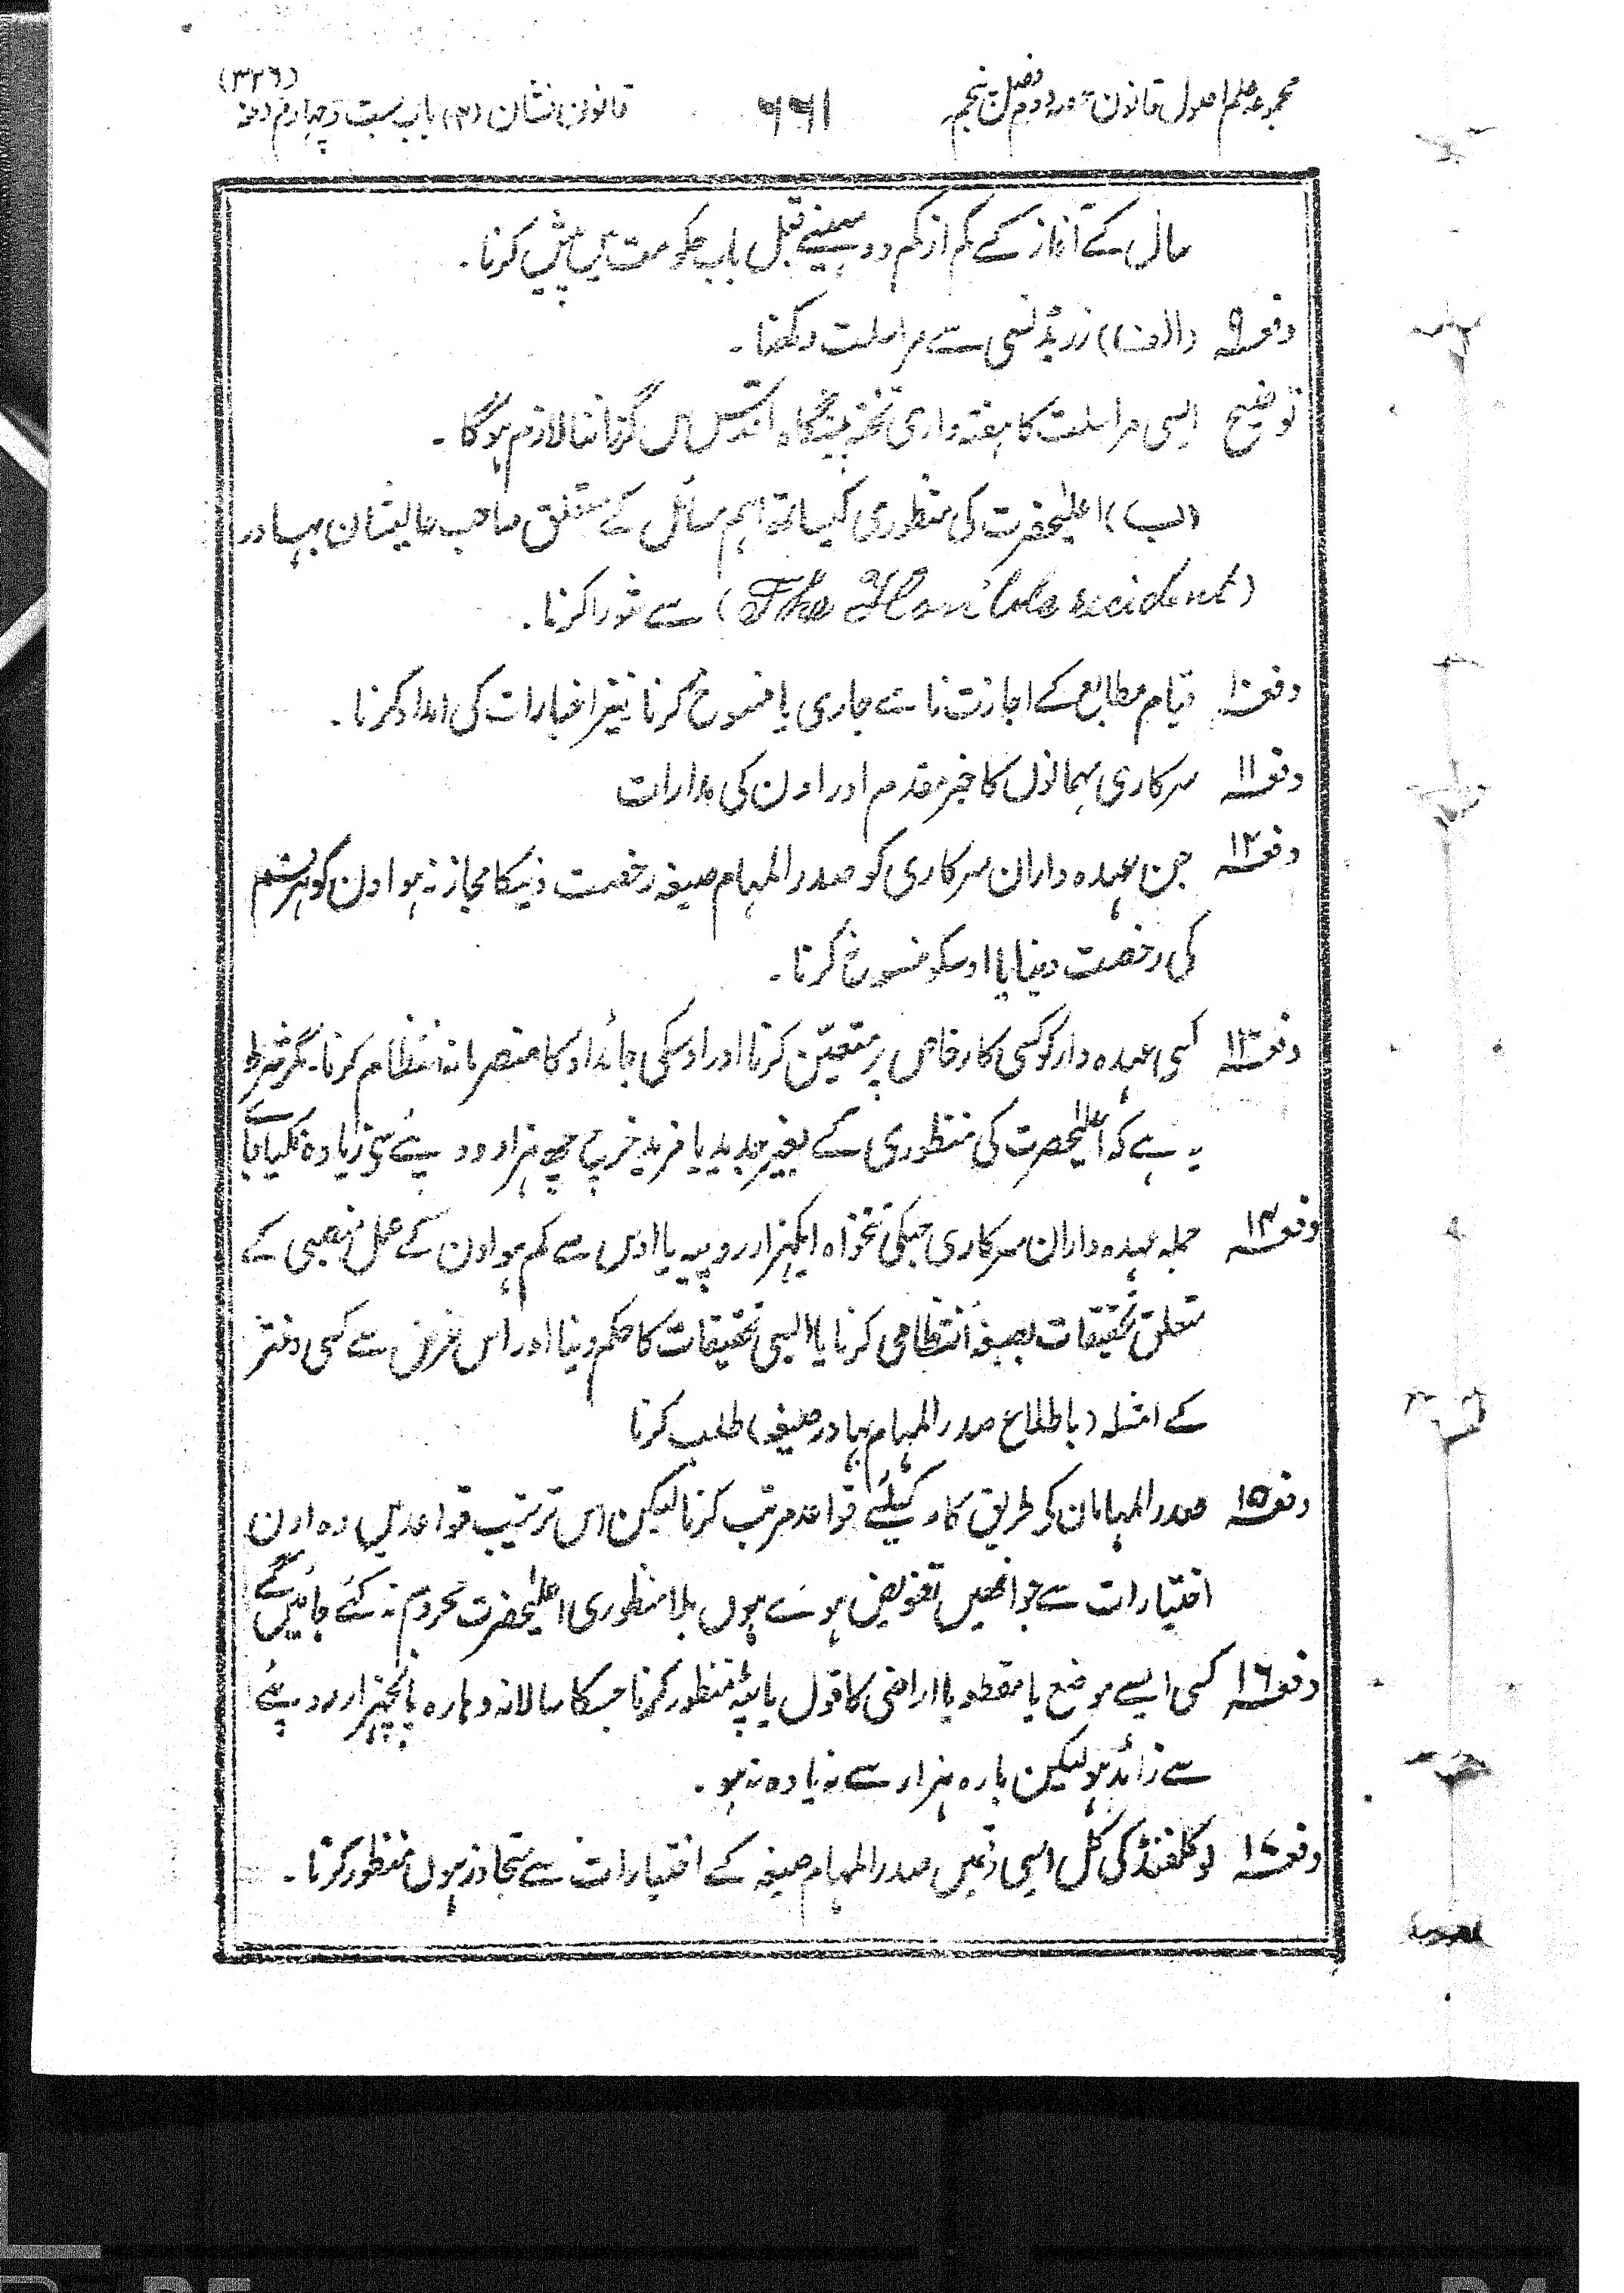 مجموعہ علم اصول قانون حصہ دوم فصل پنجم
۶۶۱
قانون نشان (۳) باب بست و چہارم دفعہ (۳۲۶)
سال کے آغاز کے کم از کم دو مہینے قبل باب حکومت میں پیش کرنا۔
دفعہ ۹ (الف) رزیڈنسی سے مراسلت رکھنا۔
توضیح ایسی مراسلت کا ہفتہ واری تختہ پیشگاہ اقدس میں گزراننا لازم ہوگا۔
(ب) اعلیٰحضرت کی منظوری کیساتھ اہم مسائل کے متعلق صاحب عالیشان بہادر
(The Hon'ble resident) سے شورا کرنا۔
دفعہ ۱۰ قیام مطابع کے اجازت نامے جاری یا منسوخ کرنا نیز اخبارات کی امداد کرنا۔
دفعہ ۱۱ سرکاری مہمانوں کا خیر مقدم اور اون کی مدارات
دفعہ ۱۲ جن عہدہ داران سرکاری کو صدر المہام صیغہ رخصت دینیکا مجاز نہ ہو اون کو ہر قسم
کی رخصت دینا یا اوسکو منسوخ کرنا۔
دفعہ ۱۳ کسی عہدہ دار کو کسی کار خاص پر متعین کرنا اور اوسکی جائداد کا منصرمانہ انتظام کرنا۔ مگر شرط
یہ ہے کہ اعلیٰحضرت کی منظوری کے بغیر جدید یا مزید خرچ چھ ہزار روپیے سے زیادہ نکیا جائے
دفعہ ۱۴ جملہ عہدہ داران سرکاری جنکی تنخواہ ایکہزار روپیہ یا اوس سے کم ہو اون کے عمل منصبی کے
متعلق تحقیقات بصیغہ انتظامی کرنا یا ایسی تحقیقات کا حکم دینا اور اس غرض سے کسی دفتر
کے امثلہ (باطلاع صدر المہام بہادر صیغہ) طلب کرنا
دفعہ ۱۵ صدر المہامان کی طریق کار کیلئے قواعد مرتب کرنا لیکن اس ترتیب قواعد میں وہ اون
اختیارات سے جو انھیں تفویض ہوے ہوں بلا منظوری اعلیٰحضرت محروم نہ کئے جائیں گے
دفعہ ۱۶ کسی ایسے موضع یا مقطعہ یا اراضی کا قول یا پٹہ منظور کرنا جسکا سالانہ دہارہ پانچہزار روپیے
سے زائد ہو لیکن بارہ ہزار سے زیادہ نہ ہو۔
دفعہ ۱۷ لوکلفنڈ کی کل ایسی رقمیں صدر المہام صیغہ کے اختیارات سے متجاوز ہوں منظور کرنا۔